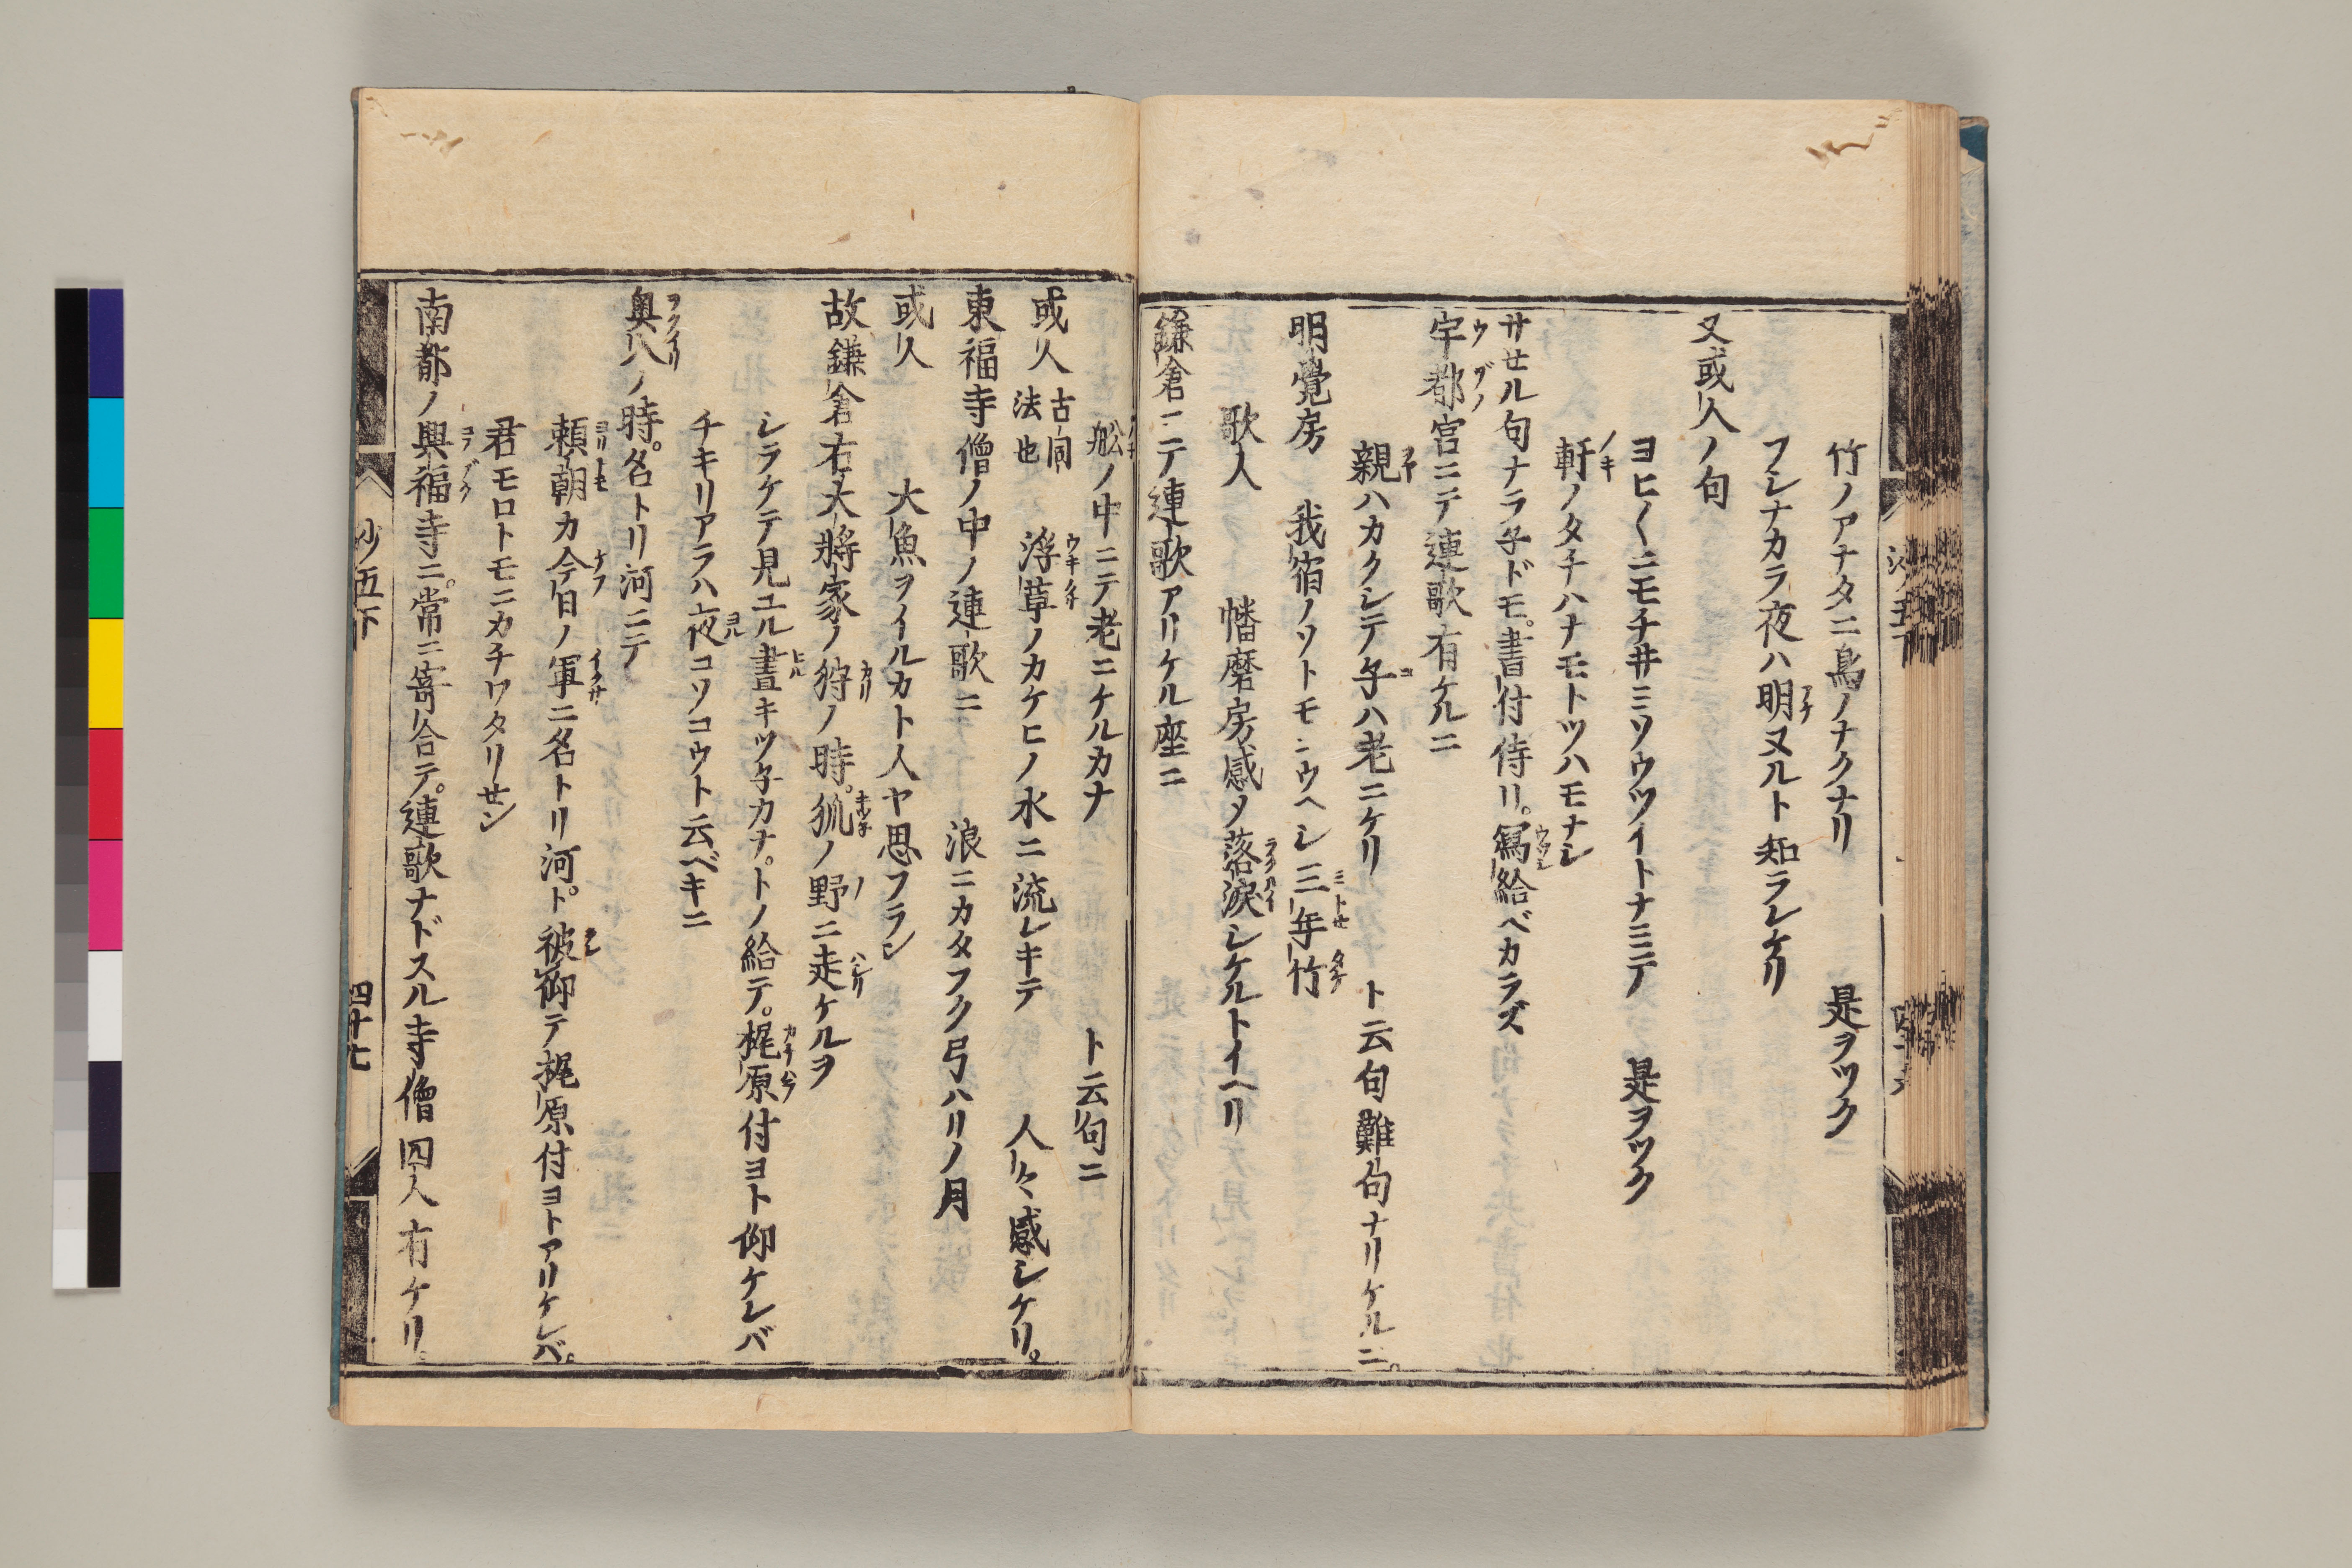 竹ノアナタニ鳥ノナクナリ　是ヲツク
フシナカラ夜ハ明ヌルト知ラレケリ
又或人ノ句
ヨヒ〱ニモチ井ミツウツイトナミニテ　是ヲツク
軒ノタチハナモトツハモナシ
サセル句ナラ子ドモ。書付侍リ。寫給ベカラズ
宇都宮ニテ連歌有ケルニ
親ハカクシテ子ハ老ニケリ　ト云句難句ナリケルニ。
明覺房　我宿ノソトモニウヘシ三年竹
歌人　幡磨房感メ落涙シケルトイヘリ
鎌倉ニテ連歌アリケル座ニ
舩ノ中ニテ老ニケルカナ　ト云句ニ
或人　古同法也　浮草ノカケヒノ水ニ流レキテ　人々感シケリ。
東福寺僧ノ中ノ連歌ニ　浪ニカタフク弓ハリノ月
或人　大魚ヲイルカト人ヤ思フラン
故鎌倉右大將家ノ狩ノ時。狐ノ野ニ走ケルヲ
シラケテ見ユル晝キツ子カナ。トノ給テ。梶原付ヨト仰ケレバ
チキリアラハ夜コソコウト云ベキニ
奥入ノ時。名トリ河ニテ
頼朝カ今日ノ軍ニ名トリ河。ト被仰テ梶原付ヨトアリケレバ。
君モロトモニカチワタリセン
南都ノ興福寺ニ。常ニ寄合テ。連歌ナドスル寺僧四人有ケリ。
沙五下
四十七